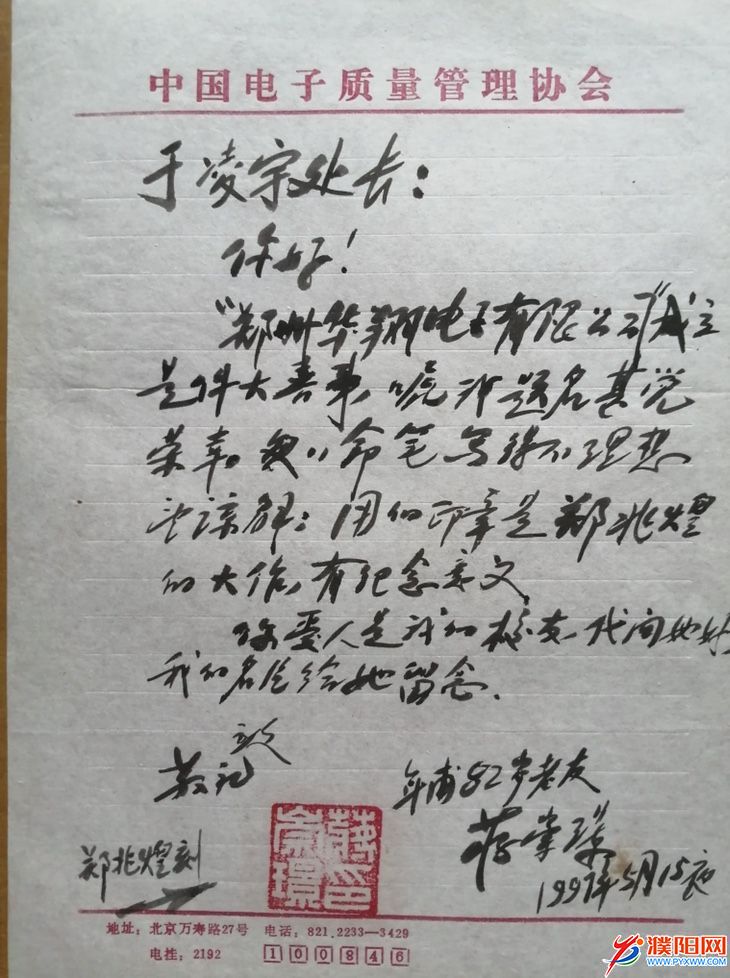 中国电子质量管理协会
于凌宗处长：
你好！
“郑州华翔电子有限公司”成立
是件大喜事，嘱我题名甚觉
荣幸。我们命笔写得不理想
望谅解：用的印章是郑兆煌
的大作，有纪念意义
你爱人是我的校友，代问她好
我的名片给她留念。
致
敬礼
年甫82岁老友
蒋崇璟
1997年5月15夜
郑兆煌刻
蒋崇璟印
地址：北京万寿路27号 电话：821.2233—3429
电挂：2192 100846
濮阳网
WWW.PYXWW.COM